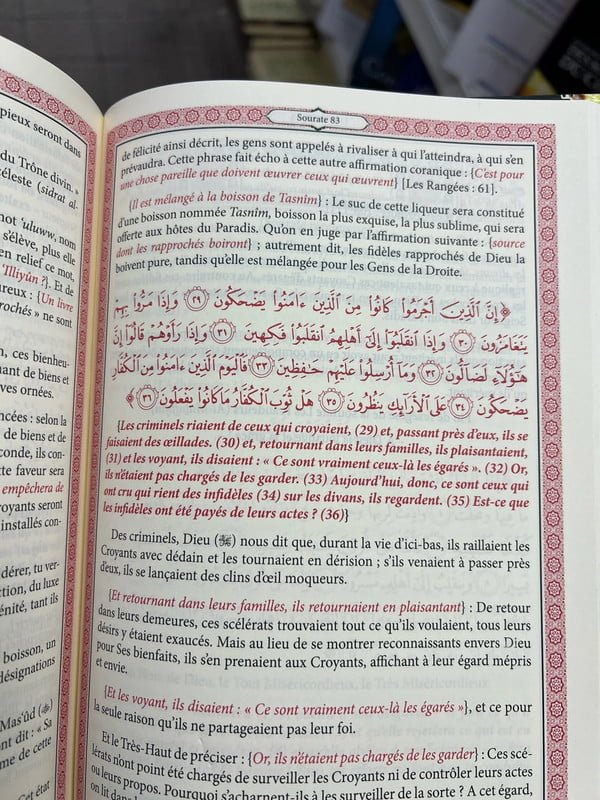 pieux seront dans
du Trône divin. »
céleste (sidrat al-
mot 'uluww, nom
s'élève, plus elle
en relief ce mot,
'Illiyûn ?}. Et de
ureux : {Un livre
rochés » ne sont
n, ces bienheu-
nant de biens et
ves ornées.
ncées : selon la
de biens et de
conde, ils con-
tte faveur sera
empêchera de
oyants seront
installés con-
dérer, tu ver-
ction, du luxe
énité, tant ils
boisson, un
désignations
Mas'ûd (ﷺ)
nt dit : « Sa
me de cette
et état
Sourate 83
de félicité ainsi décrit, les gens sont appelés à rivaliser à qui l'atteindra, à qui s'en
prévaudra. Cette phrase fait écho à cette autre affirmation coranique : {C'est pour
une chose pareille que doivent œuvrer ceux qui œuvrent} [Les Rangées : 61].
{Il est mélangé à la boisson de Tasnîm} : Le suc de cette liqueur sera constitué
d'une boisson nommée Tasnîm, boisson la plus exquise, la plus sublime, qui sera
offerte aux hôtes du Paradis. Qu'on en juge par l'affirmation suivante : {source
dont les rapprochés boiront} ; autrement dit, les fidèles rapprochés de Dieu la
boivent pure, tandis qu'elle est mélangée pour les Gens de la Droite.
﴿إِنَّ ٱلَّذِينَ أَجْرَمُوا۟ كَانُوا۟ مِنَ ٱلَّذِينَ ءَامَنُوا۟ يَضْحَكُونَ ٢٩ وَإِذَا مَرُّوا۟ بِهِمْ
يَتَغَامَزُونَ ٣٠ وَإِذَا ٱنقَلَبُوٓا۟ إِلَىٰٓ أَهْلِهِمُ ٱنقَلَبُوا۟ فَكِهِينَ ٣١ وَإِذَا رَأَوْهُمْ قَالُوٓا۟ إِنَّ
هَٰٓؤُلَآءِ لَضَآلُّونَ ٣٢ وَمَآ أُرْسِلُوا۟ عَلَيْهِمْ حَٰفِظِينَ ٣٣ فَٱلْيَوْمَ ٱلَّذِينَ ءَامَنُوا۟ مِنَ ٱلْكُفَّارِ
يَضْحَكُونَ ٣٤ عَلَى ٱلْأَرَآئِكِ يَنظُرُونَ ٣٥ هَلْ ثُوِّبَ ٱلْكُفَّارُ مَا كَانُوا۟ يَفْعَلُونَ ٣٦﴾
{Les criminels riaient de ceux qui croyaient, (29) et, passant près d'eux, ils se
faisaient des œillades. (30) et, retournant dans leurs familles, ils plaisantaient,
(31) et les voyant, ils disaient : « Ce sont vraiment ceux-là les égarés ». (32) Or,
ils n'étaient pas chargés de les garder. (33) Aujourd'hui, donc, ce sont ceux qui
ont cru qui rient des infidèles (34) sur les divans, ils regardent. (35) Est-ce que
les infidèles ont été payés de leurs actes ? (36)}
Des criminels, Dieu (ﷻ) nous dit que, durant la vie d'ici-bas, ils raillaient les
Croyants avec dédain et les tournaient en dérision ; s'ils venaient à passer près
d'eux, ils se lançaient des clins d'œil moqueurs.
{Et retournant dans leurs familles, ils retournaient en plaisantant} : De retour
dans leurs demeures, ces scélérats trouvaient tout ce qu'ils voulaient, tous leurs
désirs y étaient exaucés. Mais au lieu de se montrer reconnaissants envers Dieu
pour Ses bienfaits, ils s'en prenaient aux Croyants, affichant à leur égard mépris
et envie.
{Et les voyant, ils disaient : « Ce sont vraiment ceux-là les égarés »}, et ce pour
la seule raison qu'ils ne partageaient pas leur foi.
Et le Très-Haut de préciser : {Or, ils n'étaient pas chargés de les garder} : Ces scé-
lérats n'ont point été chargés de surveiller les Croyants ni de contrôler leurs actes
ou leurs propos. Pourquoi s'acharnent-ils à les surveiller de la sorte ? A cet égard,
on lit dans